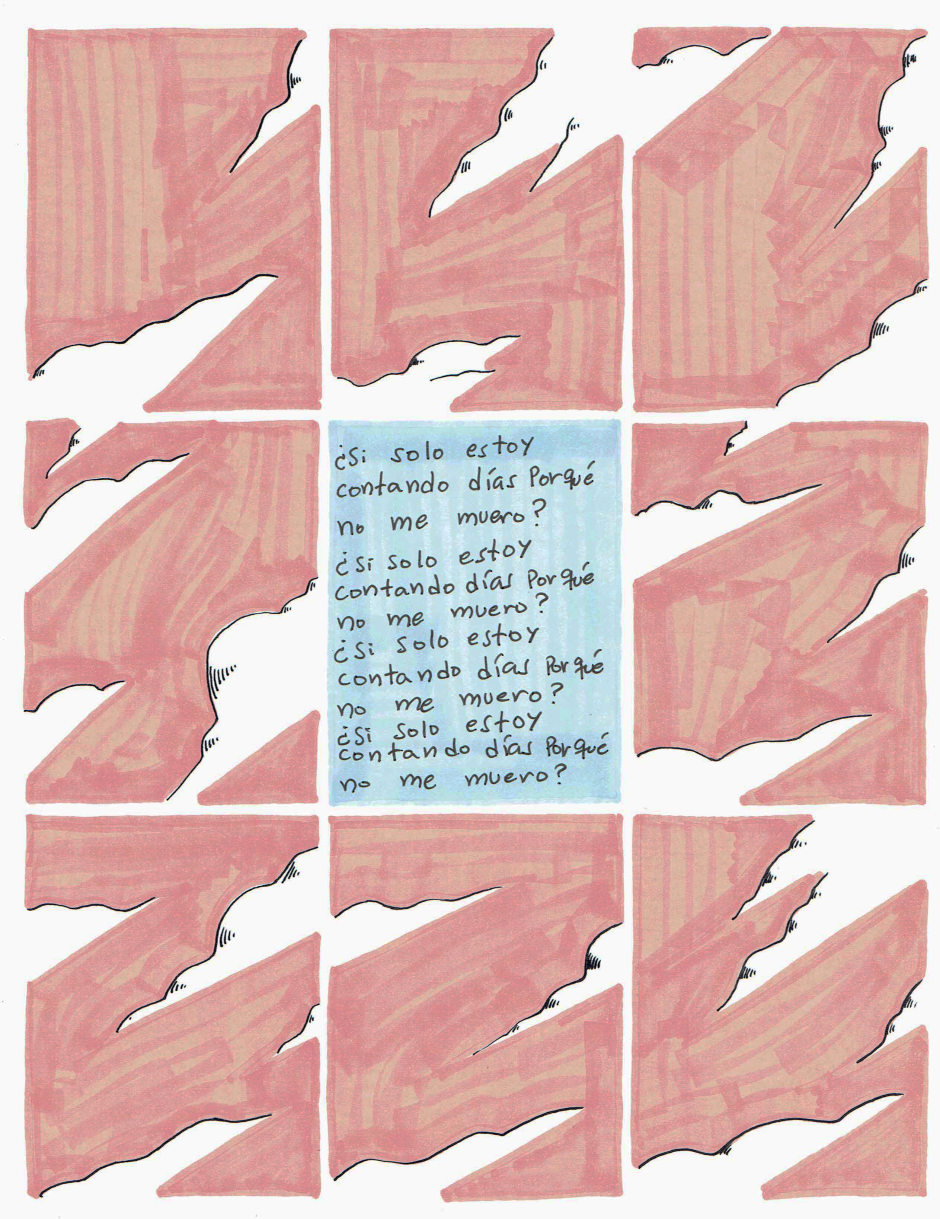 ¿Si solo estoy
contando días Porqué
no me muero?
¿Si solo estoy
contando días Porqué
no me muero?
¿Si solo estoy
contando días Porqué
no me muero?
¿Si solo estoy
contando días Porqué
no me muero?